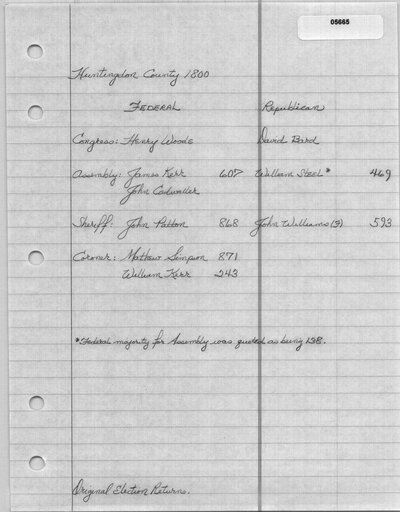 05665
Huntingdon County 1800
FEDERAL Republican
Congress: Henry Woods David Bard
Assembly: James Kerr 607 William Steel* 469
John Cadwaller
Sheriff: John Patton 868 John Williams (?) 593
Coroner: Mathew Simpson 871
William Kerr 243
*Federal majority for Assembly was quoted as being 138.
Original Election Returns.